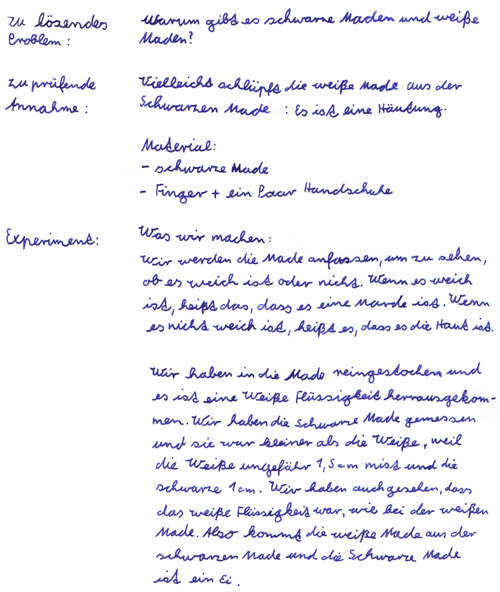 zu lösendes Problem :
Warum gibt es schwarze Maden und weiße
Maden?
zu prüfende Annahme :
Vielleicht schlüpft die weiße Made aus der
Schwarzen Made : Es ist eine Häutung.
Material:
- schwarze Made
- Finger + ein Paar Handschuhe
Experiment:
Was wir machen:
Wir werden die Made anfassen, um zu sehen,
ob es weich ist oder nicht. Wenn es weich
ist, heißt das, dass es eine Marde ist. Wenn
es nicht weich ist, heißt es, dass es die Haut ist.
Wir haben in die Made reingestochen und
es ist eine Weiße Flüssigkeit herrausgekom-
men. Wir haben die Schwarze Made gemessen
und sie war kleiner als die Weiße, weil
die Weiße ungefähr 1,5 cm misst und die
schwarze 1 cm. Wir haben auch gesehen, dass
das weiße Flüssigkeit war, wie bei der weißen
Made. Also kommt die weiße Made aus der
schwarzen Made und die Schwarze Made
ist ein Ei.